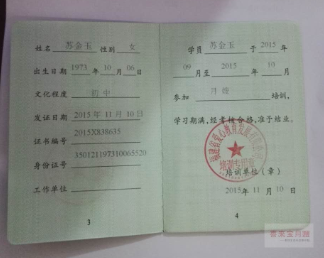 姓名 苏金玉 性别 女
出生日期 1973 年 10 月 06 日
文化程度 初中
发证日期 2015 年 11 月 10 日
证书编号 2015XR38635
身份证号 350121197310065520
工作单位
3
学员 苏金玉 于 2015 年
09 月至 2015 年 10 月
参加 月嫂 培训,
学习期满,经考核合格,准予结业。
培训专用章
培训单位(章)
2015 年 11 月 10 日
4